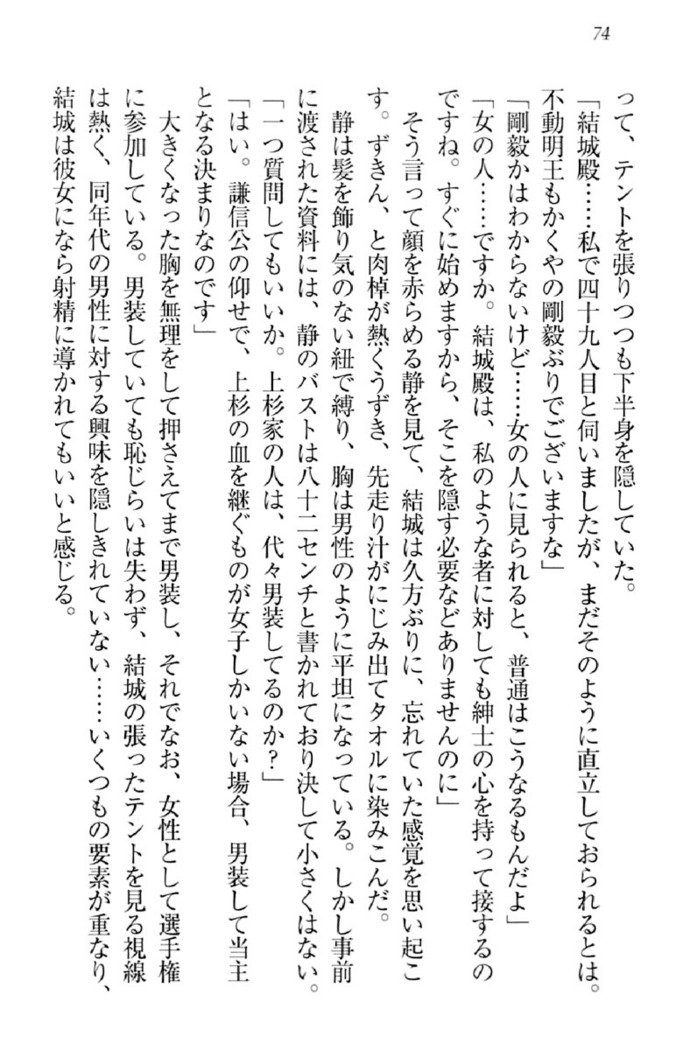 74
って、テントを張りつつも下半身を隠していた。
「結城殿……私で四十九人目と伺いましたが、まだそのように直立しておられるとは。
不動明王もかくやの剛毅ぶりでございますな」
「剛毅かはわからないけど……女の人に見られると、普通はこうなるもんだよ」
「女の人……ですか。結城殿は、私のような者に対しても紳士の心を持って接するの
ですね。すぐに始めますから、そこを隠す必要などありませんのに」
　そう言って顔を赤らめる静を見て、結城は久方ぶりに、忘れていた感覚を思い起こ
す。ずきん、と肉棹が熱くうずき、先走り汁がにじみ出てタオルに染みこんだ。
　静は髪を飾り気のない紐で縛り、胸は男性のように平坦になっている。しかし事前
に渡された資料には、静のバストは八十二センチと書かれており決して小さくはない。
「一つ質問してもいいか。上杉家の人は、代々男装してるのか？」
「はい。謙信公の仰せで、上杉の血を継ぐものが女子しかいない場合、男装して当主
となる決まりなのです」
　大きくなった胸を無理をして押さえてまで男装し、それでなお、女性として選手権
に参加している。男装していても恥じらいは失わず、結城の張ったテントを見る視線
は熱く、同年代の男性に対する興味を隠しきれていない……いくつもの要素が重なり、
結城は彼女になら射精に導かれてもいいと感じる。